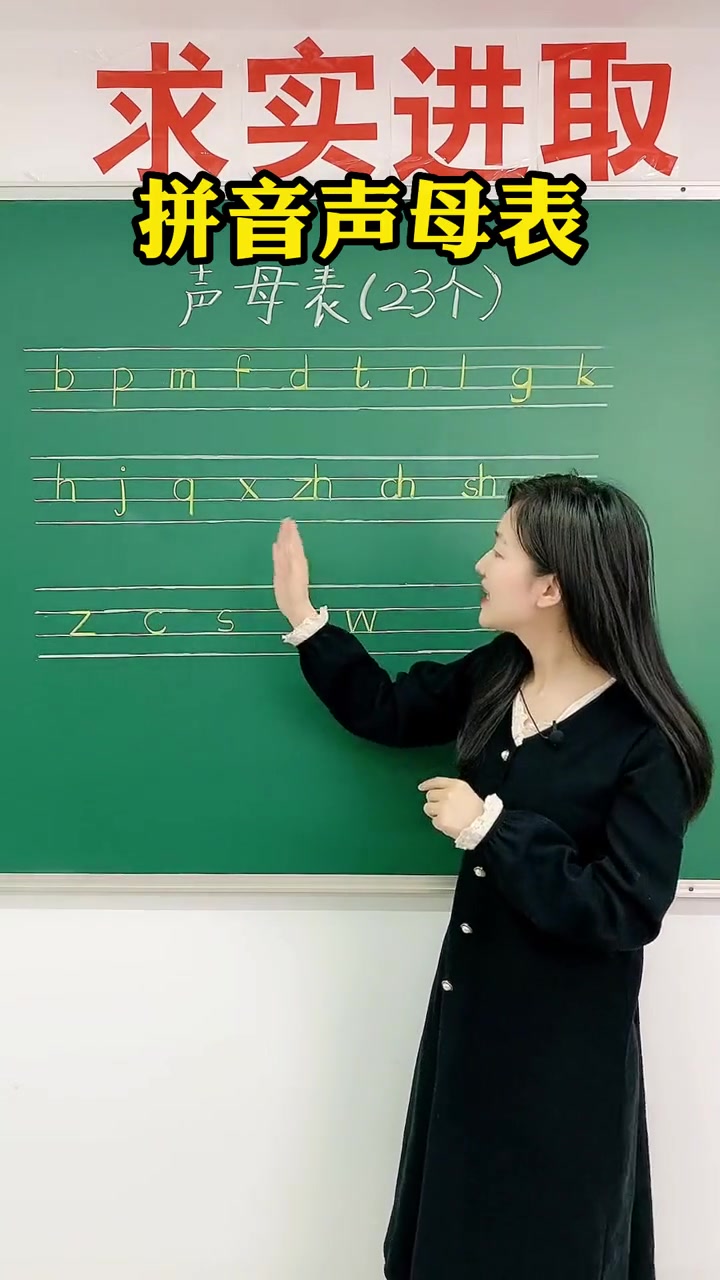 求实进取
拼音声母表
声母表(23个)
b p m f d t n l g k
h j q x zh ch sh
z c s w